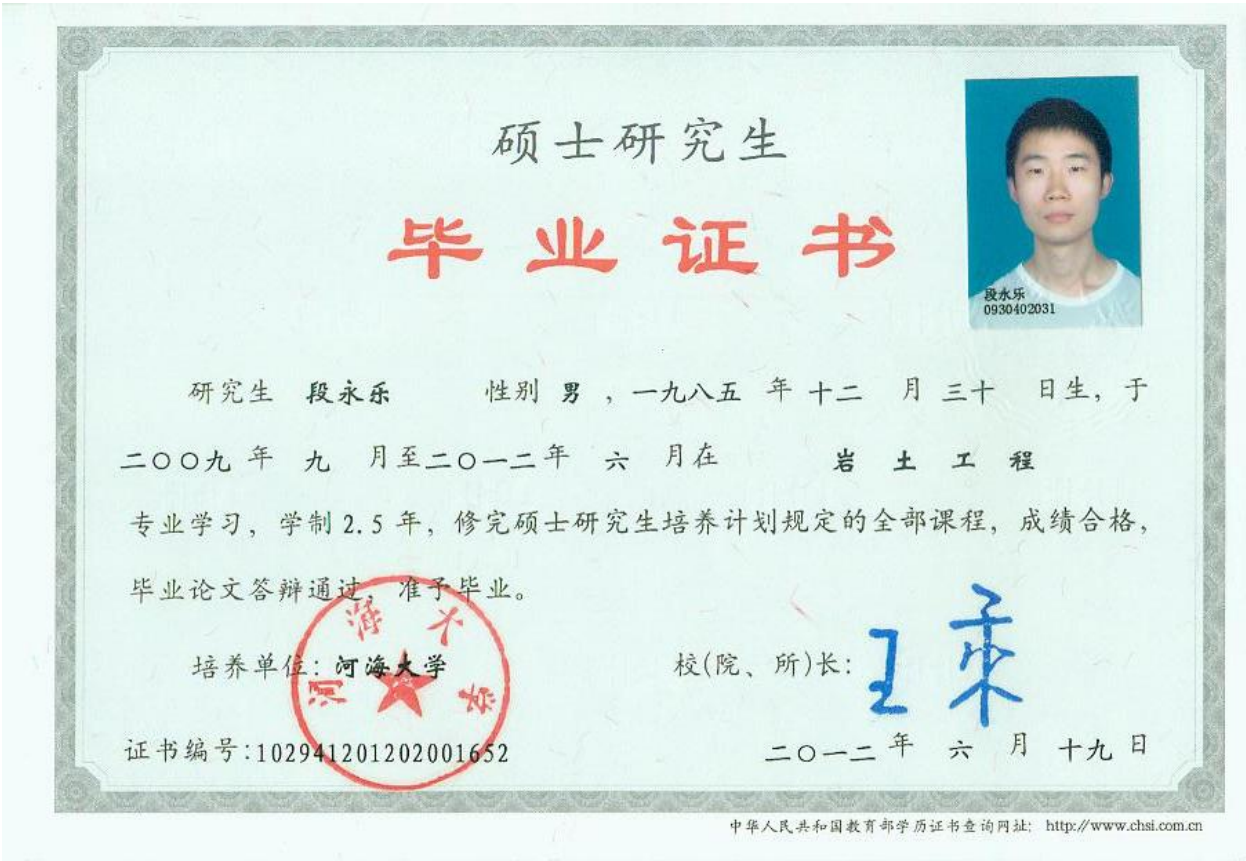 硕士研究生
毕业证书
段永乐
0930402031
研究生 段永乐 性别 男 , 一九八五 年 十二 月 三十 日生, 于
二〇〇九 年 九 月至二〇一二年 六 月在 岩土工程
专业学习, 学制 2.5 年, 修完硕士研究生培养计划规定的全部课程, 成绩合格,
毕业论文答辩通过, 准予毕业。
河海大学
培养单位: 河海大学 校(院、所)长: 王乘
证书编号:102941201202001652 二〇一二 年 六 月 十九 日
中华人民共和国教育部学历证书查询网址: http://www.chsi.com.cn